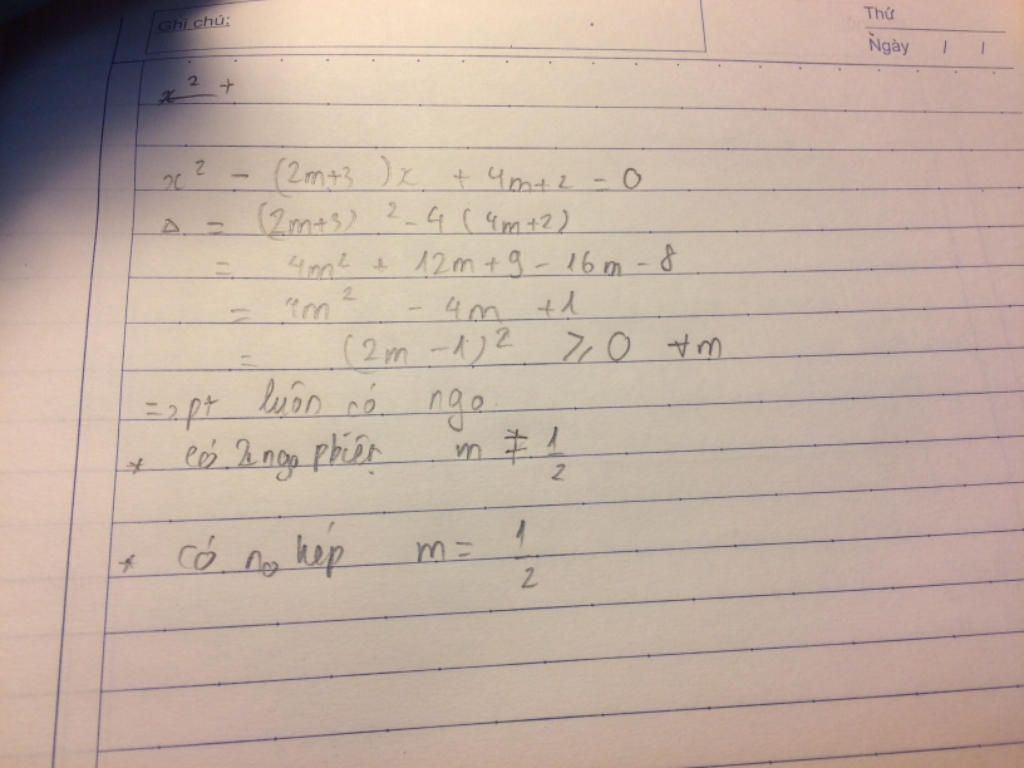 Ghi chú:
Thứ
Ngày / /
x² +
x² - (2m+3)x + 4m+2 = 0
Δ = (2m+3)² - 4(4m+2)
= 4m² + 12m + 9 - 16m - 8
= 4m² - 4m + 1
= (2m - 1)² ⩾ 0 ∀m
=> pt luôn có ngo
* có 2 ngo pbiệt m ≠ 1/2
* có no kép m = 1/2